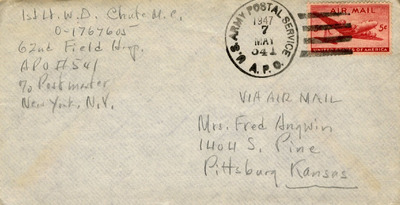 1st Lt. W. D. Chute M.C.
O-1767605
62nd Field Hosp.
APO #541
℅ Postmaster
New York, N.Y.
U.S. ARMY POSTAL SERVICE
1947
7
MAY
541
A.P.O.
AIR MAIL
5¢
UNITED STATES OF AMERICA
VIA AIR MAIL
Mrs. Fred Angwin
1404 S. Pine
Pittsburg Kansas